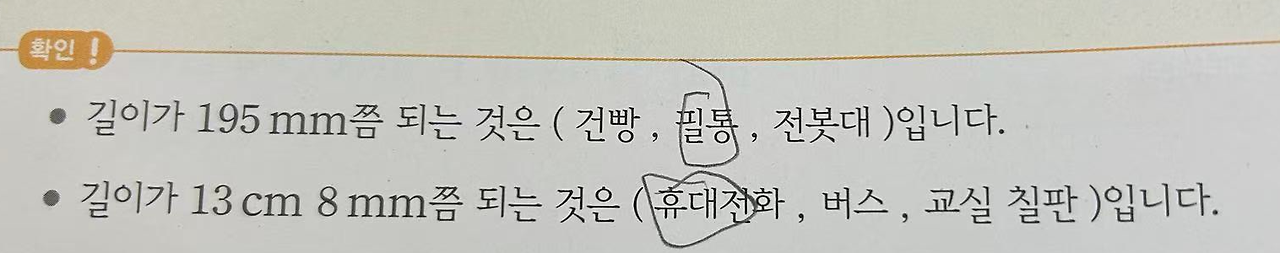 확인!
• 길이가 195 mm쯤 되는 것은 ( 건빵 , 필통 , 전봇대 )입니다.
• 길이가 13 cm 8 mm쯤 되는 것은 ( 휴대전화 , 버스 , 교실 칠판 )입니다.